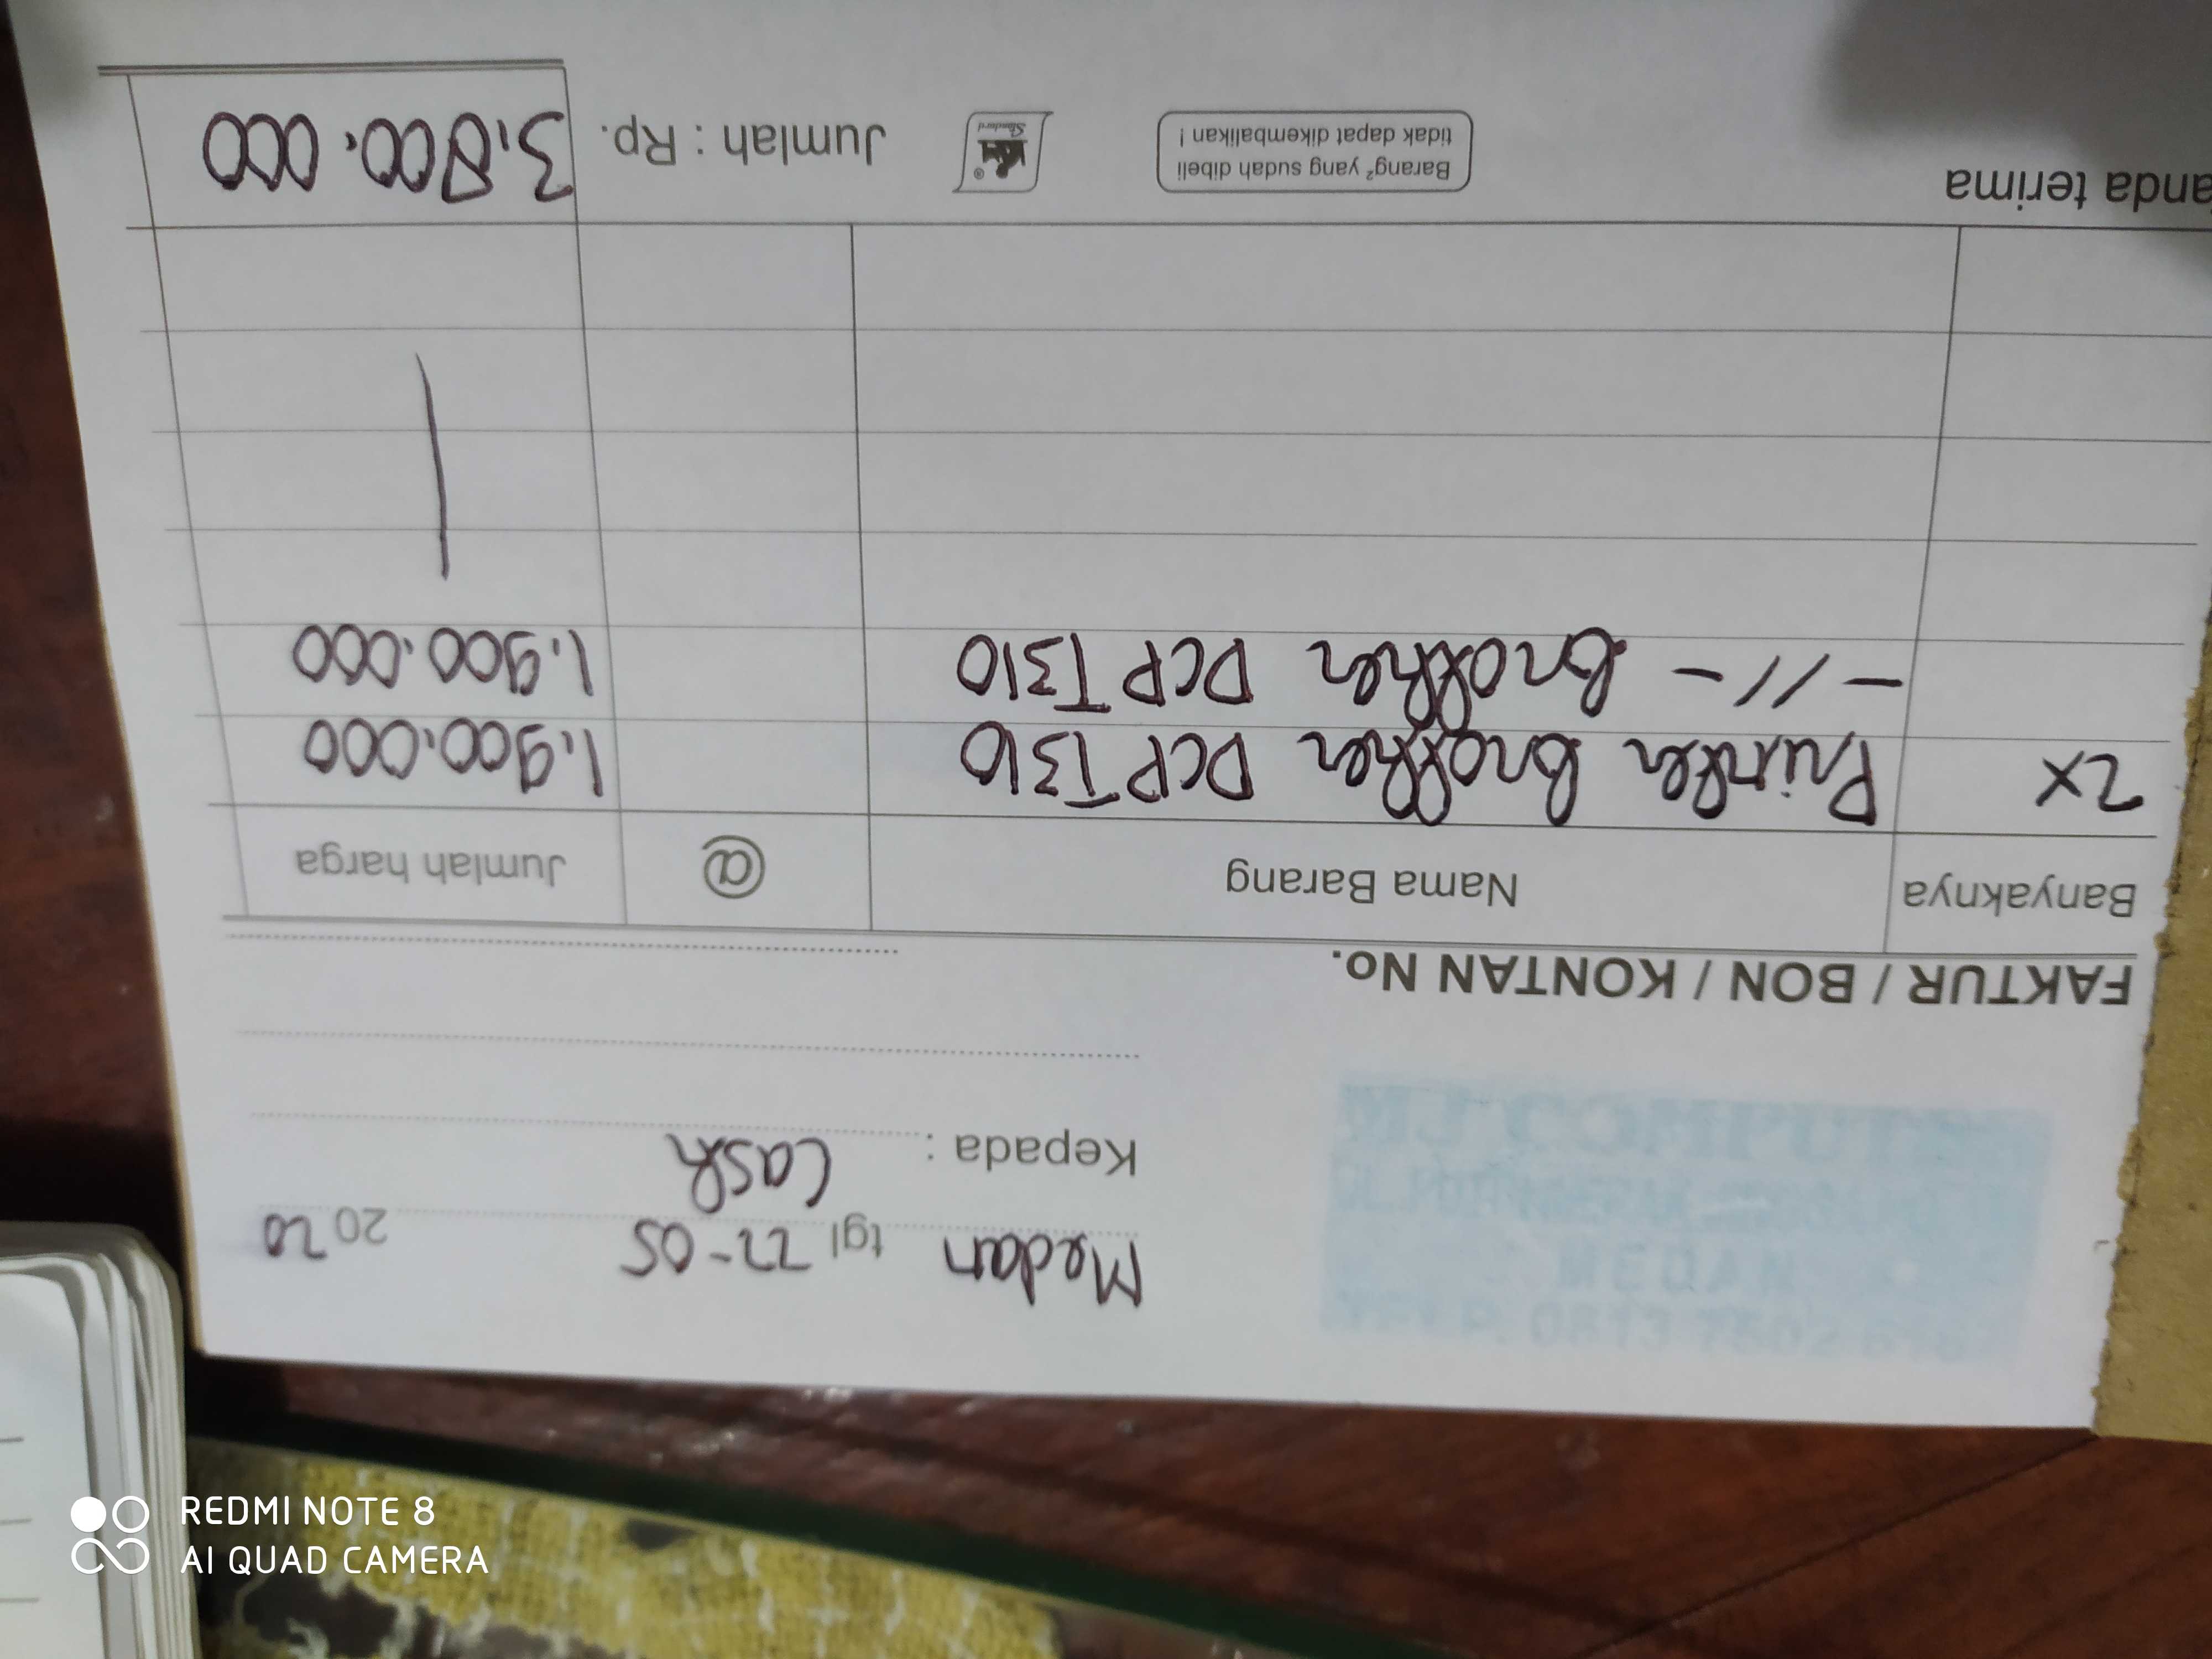 MEDAN
Medan tgl 22-05 2020
Kepada : Cash
FAKTUR / BON / KONTAN No.
Banyaknya Nama Barang @ Jumlah harga
2x Printer Brother DCP T310 1.900.000
-//- Brother DCP T310 1.900.000
anda terima
Barang² yang sudah dibeli
tidak dapat dikembalikan !
Standard
Jumlah : Rp. 3.800.000
REDMI NOTE 8
AI QUAD CAMERA